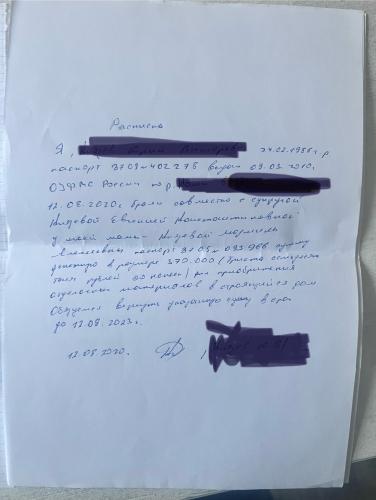 Расписка
Я, 24.02.1986 г.р
паспорт 3709 402275 выдан 09.03.2010,
ОУФМС России по гр.
12.08.2020г брали совместно с супругой
Евгенией Константиновной
у моей мамы
Алексеевны паспорт 37 05 093966 сумму
денежную в размере 370.000 (Триста семьдесят
тысяч рублей 00 копеек) для приобретения
отделочных материалов в строящийся дом
Обязуемся вернуть указанную сумму в срок
до 12.08.2023г.
12.08.2020г.